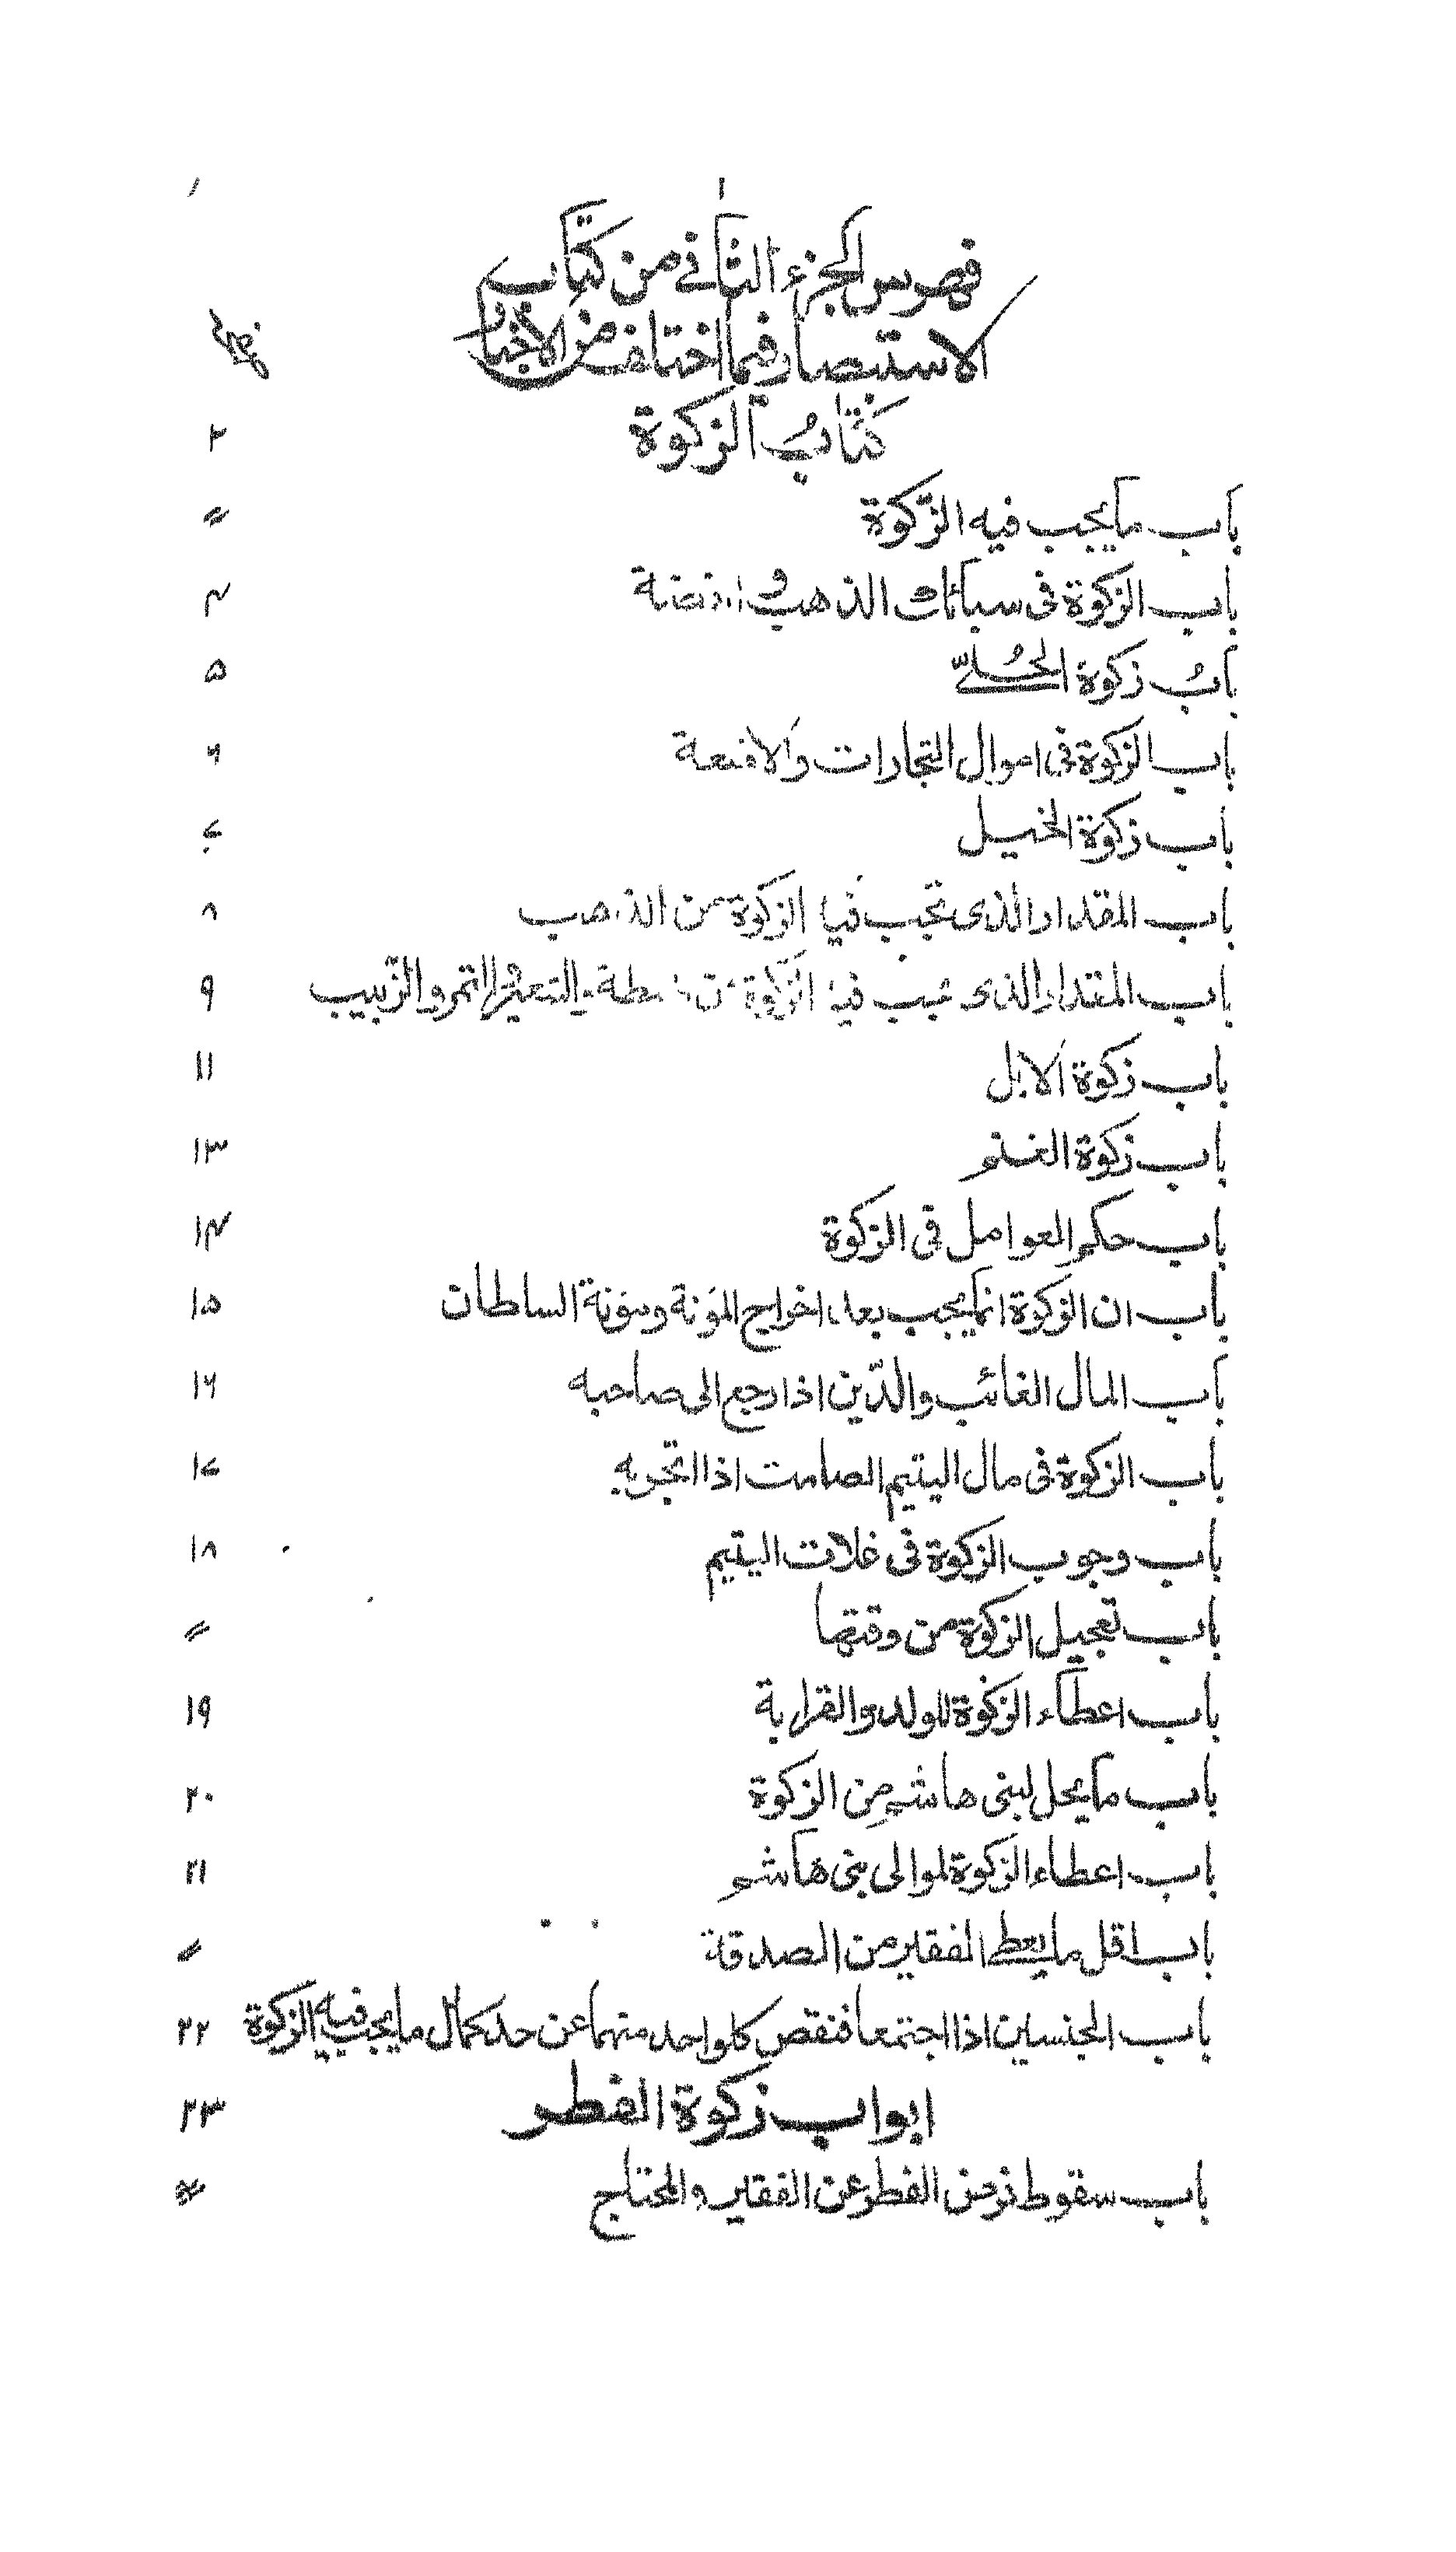 ١
فهرس الجزء الثانی من کتاب
الاستبصار فیما اختلف من الاخبار
صفحه
کتاب الزکوة ۲
باب ما یجب فیه الزکوة 〃
باب الزکوة فی سبائک الذهب والفضة ۴
باب زکوة الحُلیّ ۵
باب الزکوة فی اموال التجارات والامتعة ۶
باب زکوة الخیل ۷
باب المقدار الذی تجب فیه الزکوة من الذهب ۸
باب المقدار الذی تجب فیه الزکوة من الحنطة والشعیر والتمر والزبیب ۹
باب زکوة الابل ۱۱
باب زکوة الغنم ۱۳
باب حکم العوامل فی الزکوة ۱۴
باب ان الزکوة انما یجب بعد اخراج المؤنة ومؤنة السلطان ۱۵
باب المال الغائب والدّین اذا رجع الی صاحبه ۱۶
باب الزکوة فی مال الیتیم الصامت اذا اتجر به ۱۷
باب وجوب الزکوة فی غلات الیتیم ۱۸
باب تعجیل الزکوة من وقتها 〃
باب اعطاء الزکوة للولد والقرابة ۱۹
باب ما یحل لبنی هاشم من الزکوة ۲۰
باب اعطاء الزکوة لموالی بنی هاشم ۲۱
باب اقل ما یعطی الفقیر من الصدقة 〃
باب الجنسین اذا اجتمعا فنقص کل واحد منهما عن حد کمال ما یجب فیه الزکوة ۲۲
ابواب زکوة الفطر ۲۳
باب سقوط فرض الفطر عن الفقیر والمحتاج 〃